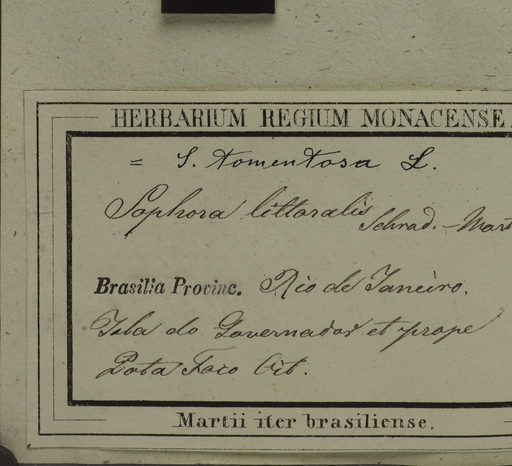 HERBARIUM REGIUM MONACENSE.
= S. tomentosa L.
Sophora littoralis
Schrad. - Mart
Brasilia Provinc. Rio de Janeiro.
Isla do Governador et prope
Bota Foco
Martii iter brasiliense.